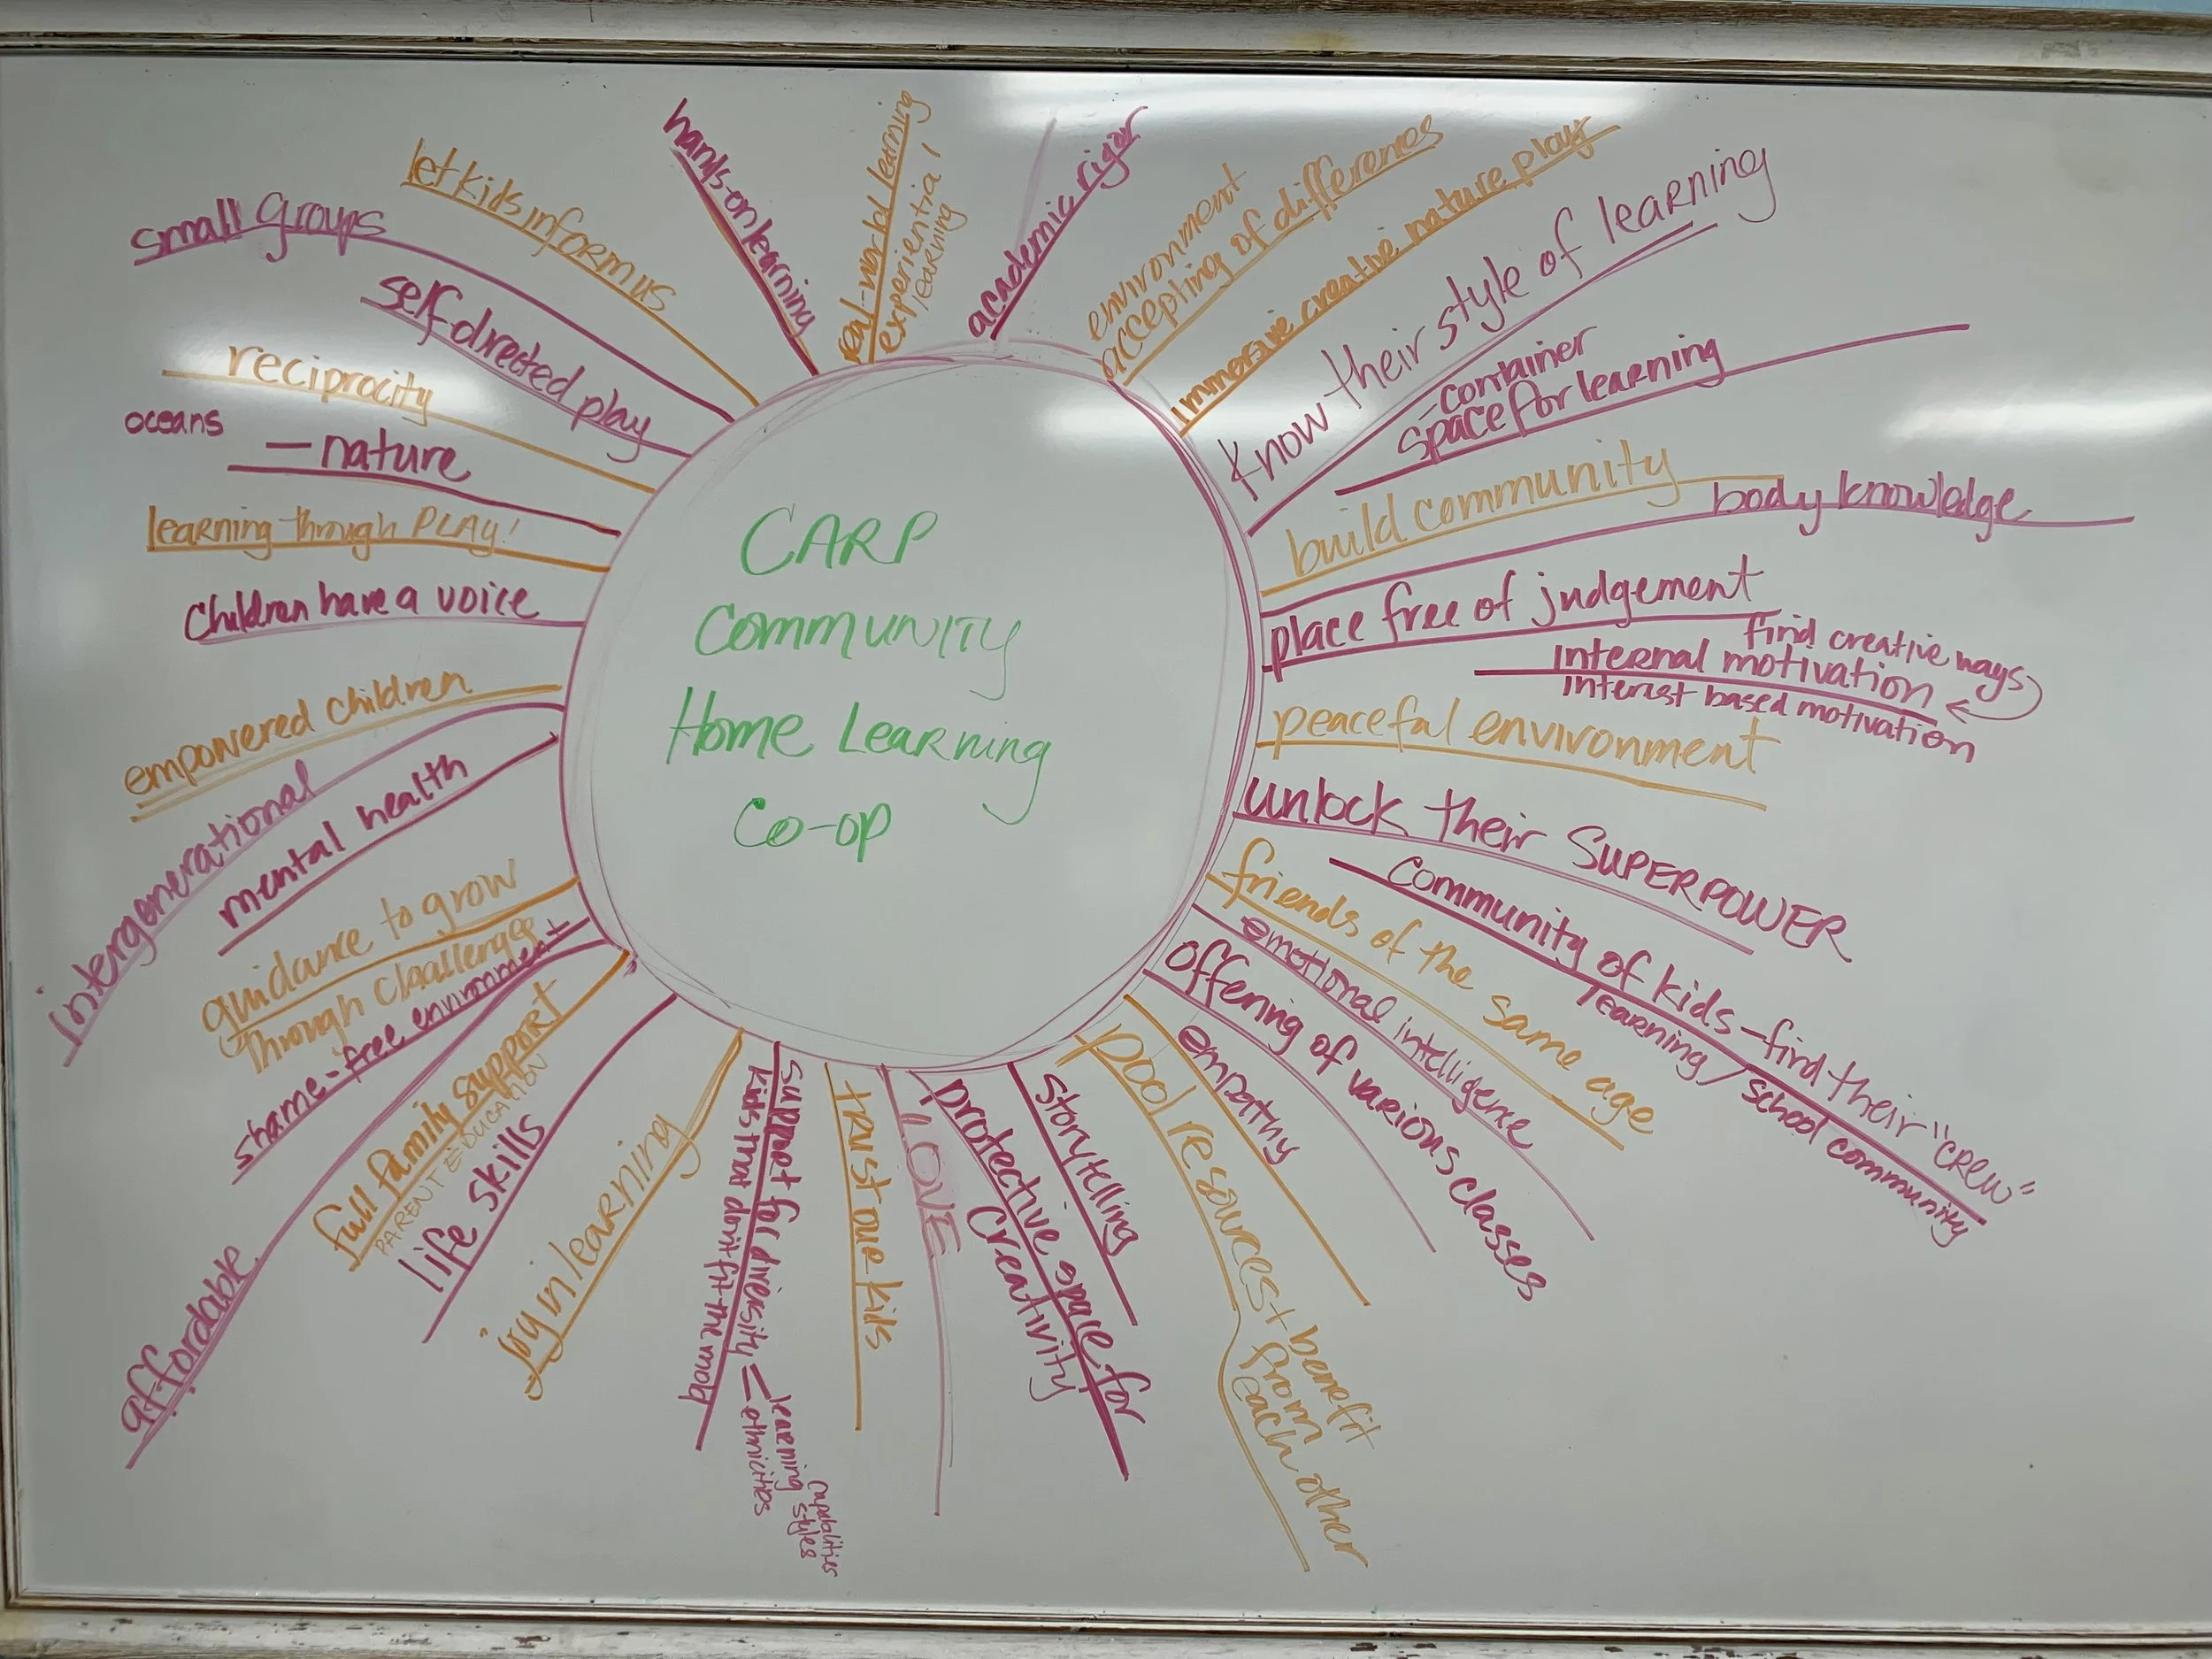 CARP
COMMUNITY
Home Learning
Co-op
academic rigor
environment
accepting of differences
immersive creative nature play
Know their style of learning
- container
space for learning
build community
body knowledge
place free of judgement
find creative ways
internal motivation
interest based motivation
peaceful environment
unlock their SUPERPOWER
community of kids - find their "crew"
learning / school community
friends of the same age
emotional intelligence
offering of various classes
empathy
pool resources + benefit
from
each other
storytelling
protective space for
creativity
LOVE
trust our kids
support for diversity = learning styles
capabilities
ethnicities
kids that don't fit the mold
joy in learning
life skills
full family support
PARENT EDUCATION
affordable
shame-free environment
guidance to grow
through challenges
mental health
intergenerational
empowered children
children have a voice
learning through PLAY!
oceans
- nature
reciprocity
self-directed play
small groups
let kids inform us
hands-on learning
real-world learning
experiential
learning